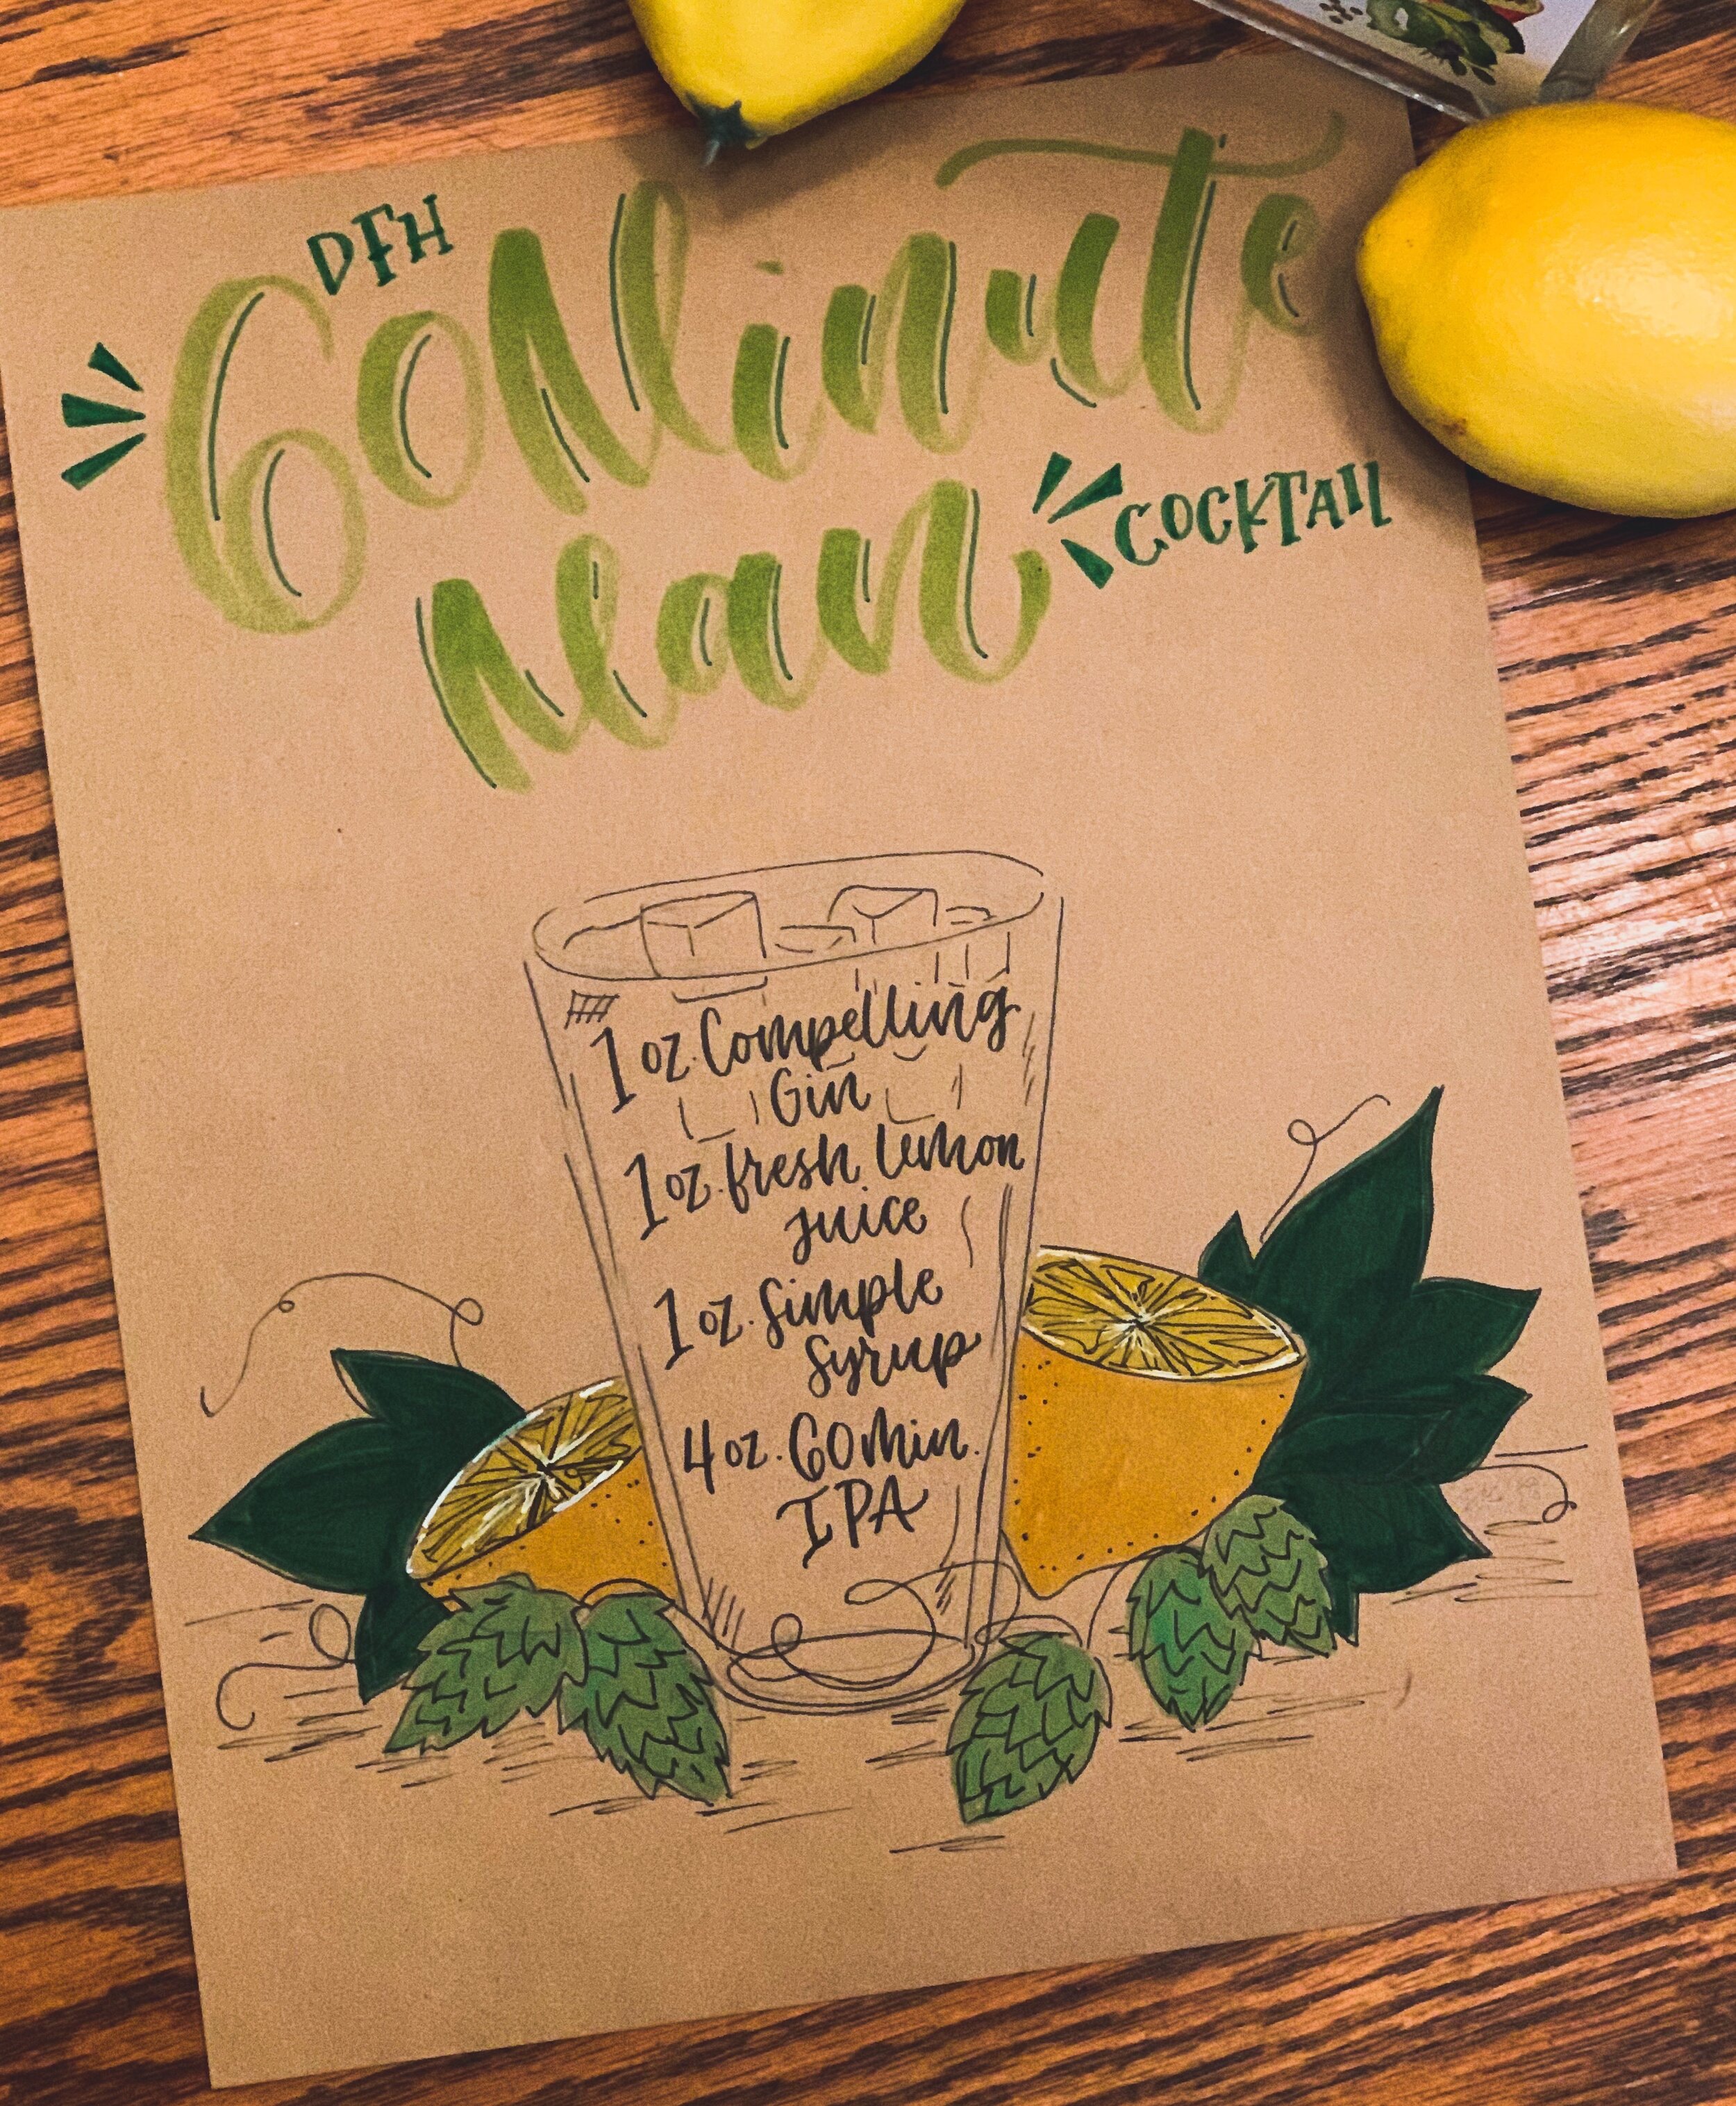 DFH
60 Minute
Man
COCKTAIL
1 oz. Compelling
Gin
1 oz. fresh lemon
juice
1 oz. Simple
Syrup
4 oz. 60 Min.
IPA